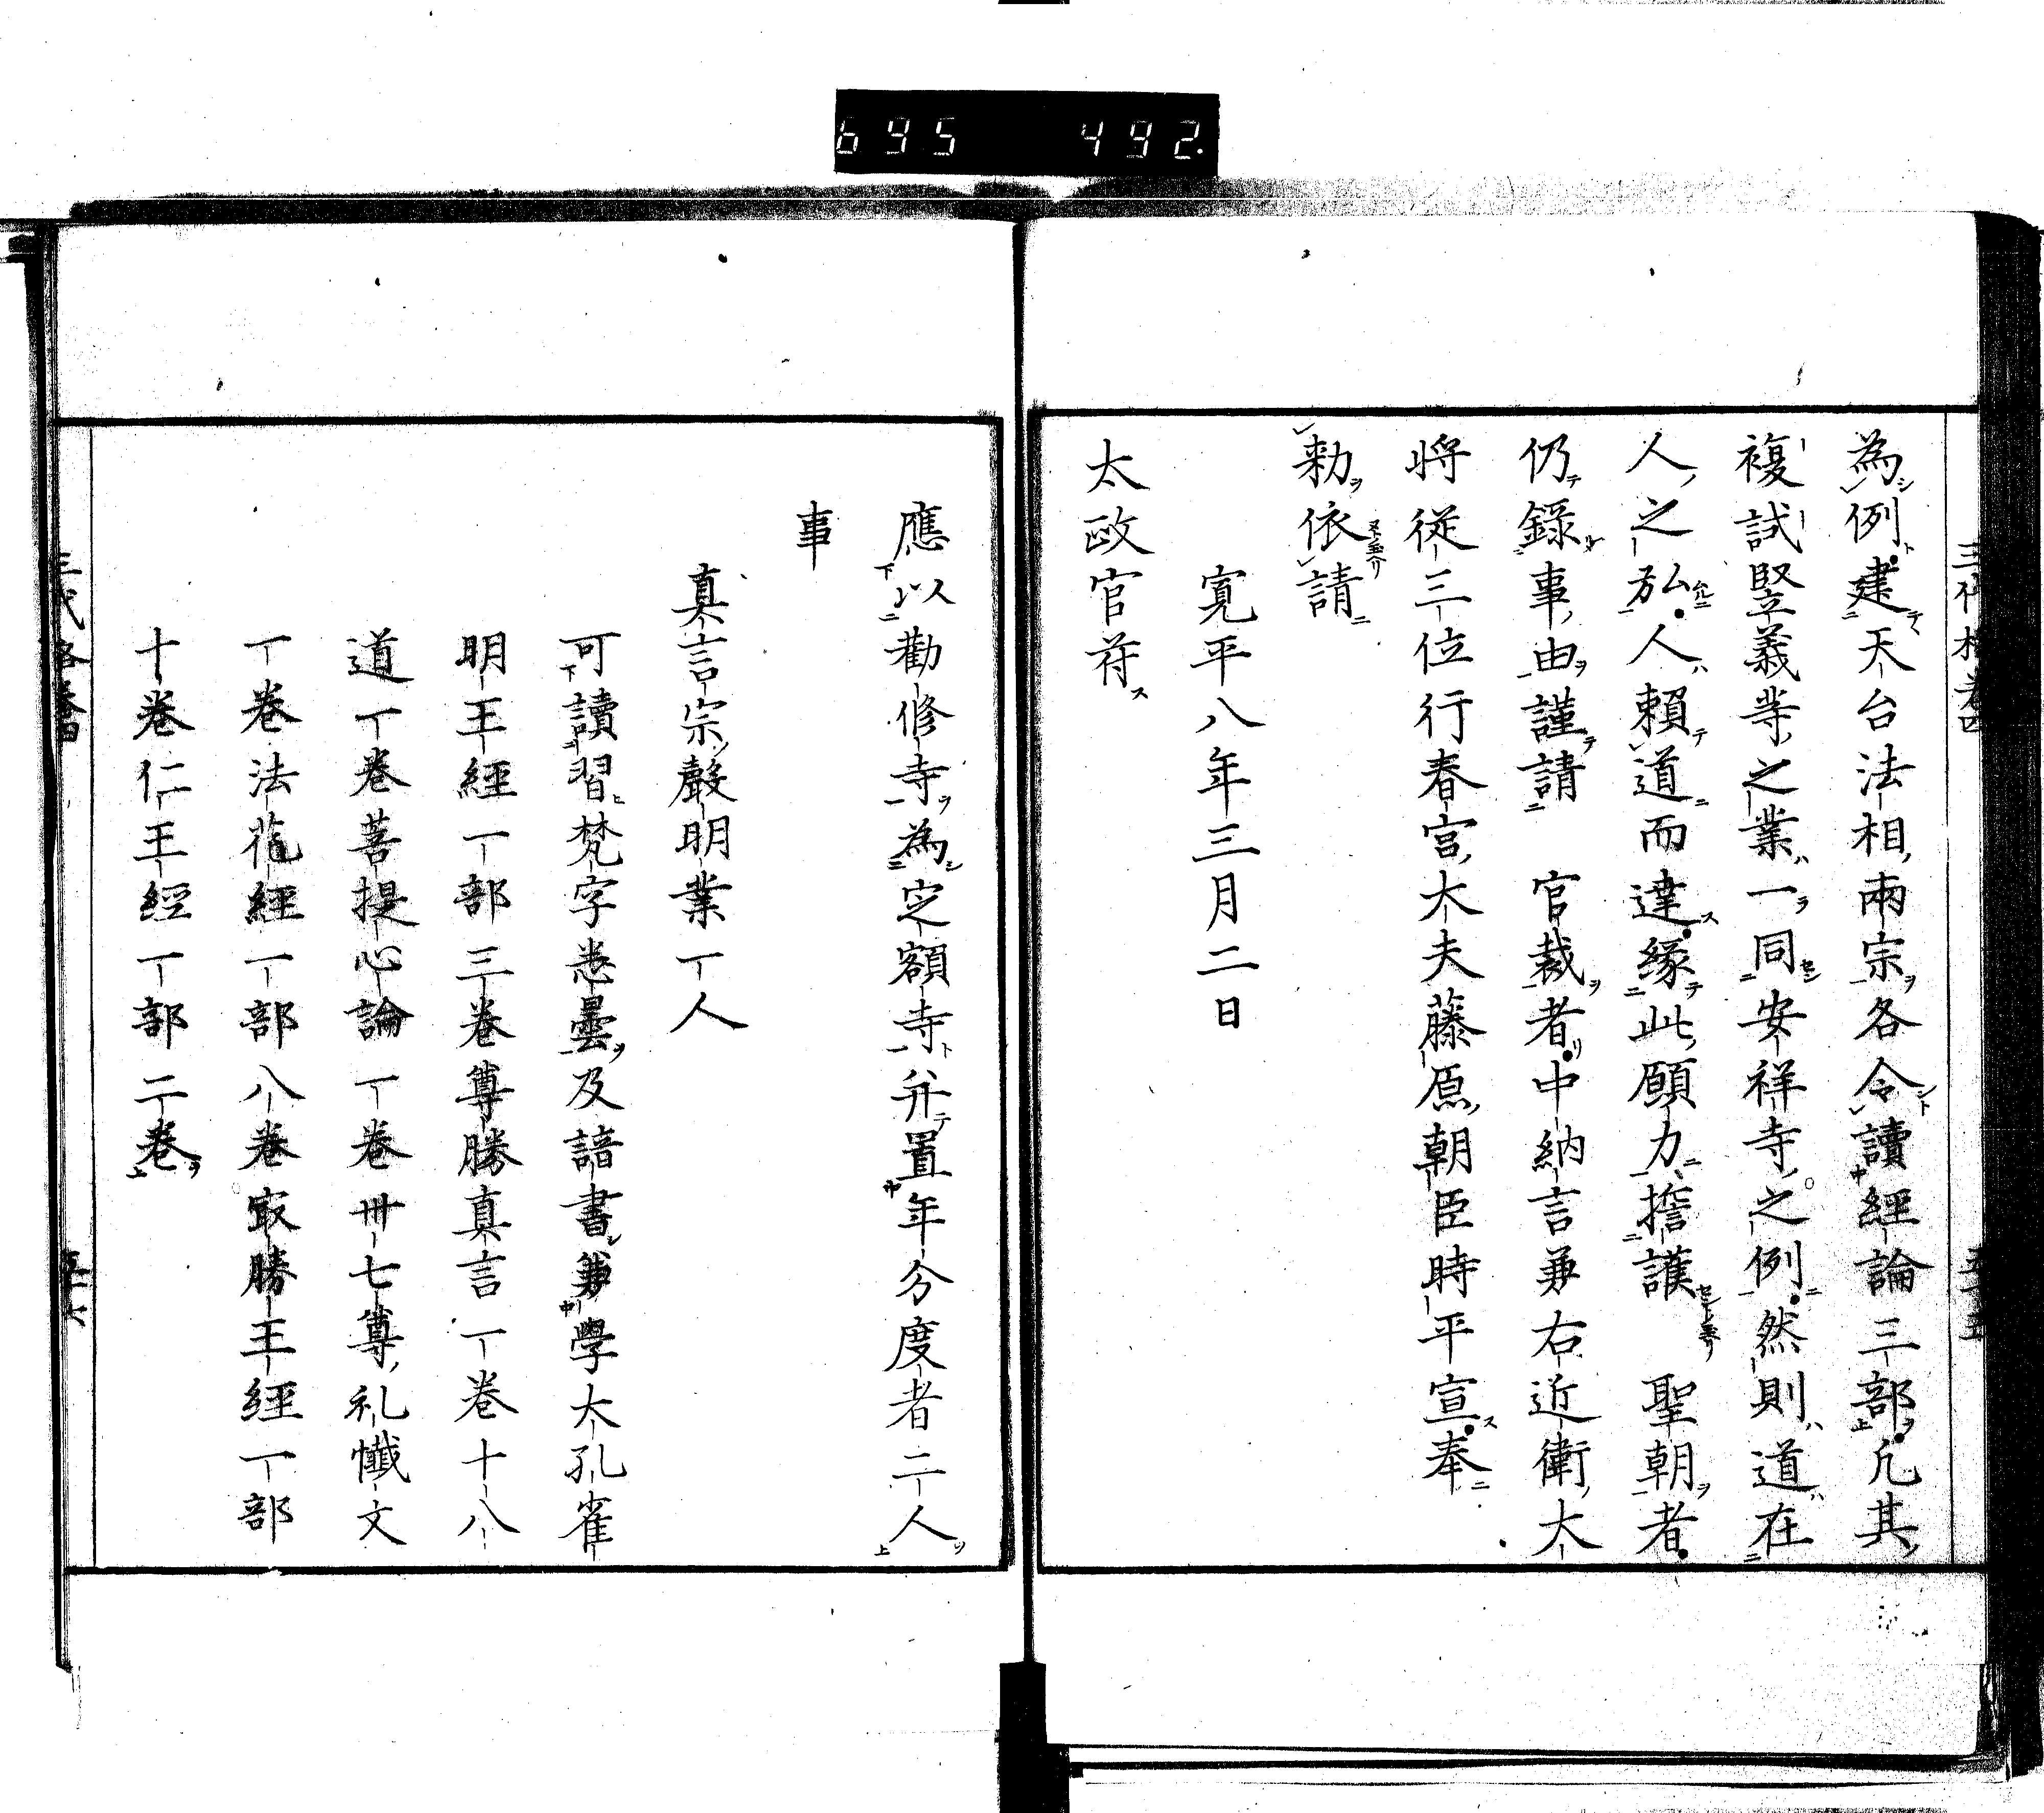 695 492.
為例建天台法相兩宗各令讀經論三部凢其
複試竪義䓁之業一同安祥寺之例然則道在
人之弘人賴道而達緣此願力擔護 聖朝者
仍錄事由謹請 官裁者中納言兼右近衛大
將從三位行春宮大夫藤原朝臣時平宣奉
勅依請
寛平八年三月二日
太政官符
應以勸修寺為定額寺并置年分度者二人
事
真言宗聲明業一人
可讀習梵字悉曇及諳書兼學大孔雀
明王經一部三卷尊勝真言一卷十八
道一卷菩提心論一卷卅七尊礼懺文
一卷法花經一部八卷㝡勝王經一部
十卷仁王經一部二卷